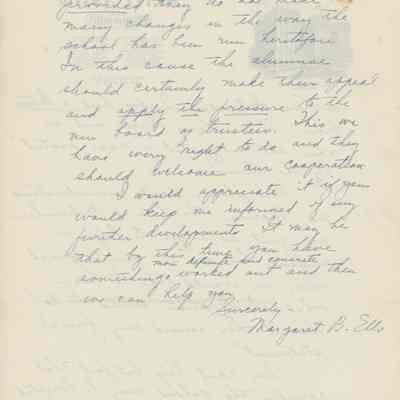 provided they do not make
many changes in the way the
school has been run heretofore.
In this cause the alumnae
should certainly make their appeal
and apply the pressure to the
new board of trustees. This we
have every right to do and they
should welcome our cooperation
I would appreciate it if you
would keep me informed if any
further developments. It may be
that by this time you have
more definite and concrete
somethings worked out and then
we can help you.
Sincerely -
Margaret B. Ells